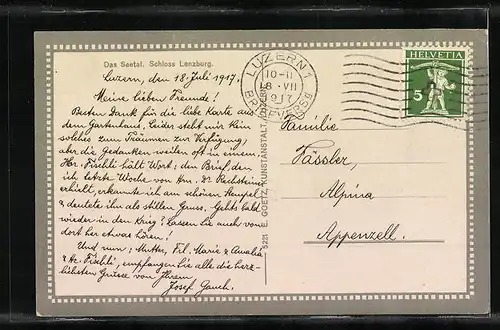 Das Seetal. Schloss Lenzburg.
Luzern, den 18. Juli 1917.
Meine lieben Freunde!
Besten Dank für die liebe Karte aus
dem Gartenhaus. Leider steht mir kein
solches zum Träumen zur Verfügung,
aber die Gedanken weilen oft in einem
Hr. Fischli hält Wort: den Brief, den
ich letzte Woche von Hrn. Dr. Rechsteiner
erhielt, erkannte ich am schönen Stempel
& deutete ihn als stillen Gruss. Gehts bald
wieder in den Krieg? Lassen Sie auch von
dort her etwas hören!
Und nun: Mutter, Frl. Marie & Amalia
& Hr. Fischli, empfangen Sie alle die herz-
lichsten Grüsse von Ihrem
Josef Gauch.
5221 E. GOETZ, KUNSTANSTALT, LUZERN
LUZERN 1
10-11
18. VII
1917
BRIEFVERS
HELVETIA
5
Familie
Fässler,
Alpina
Appenzell.